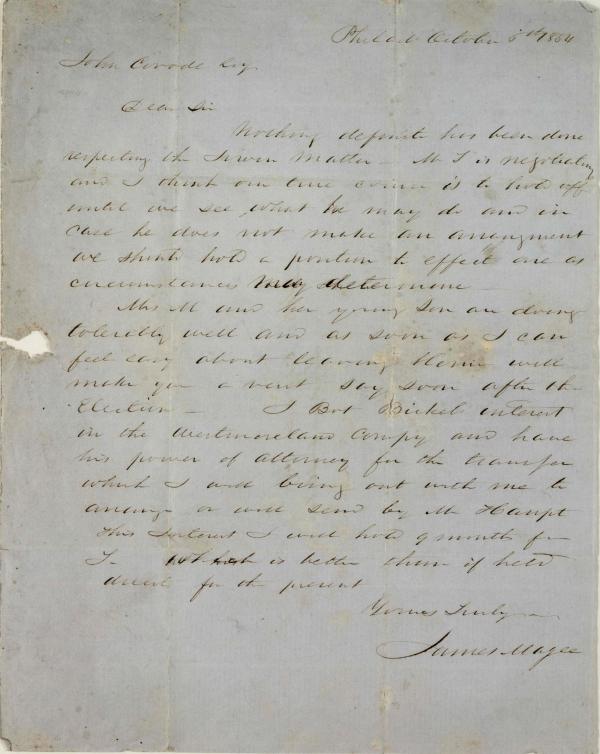 Philad October 5th 1854
John Covode Esq
Dear Sir
Nothing definite has been done
respecting the Irwin Matter – Mr T is negotiating
and I think our true course is to hold off
until we see what he may do and in
case he does not make an arrangment
we should hold a position to effect one as
circumstances may determine –
Mrs M and her young son are doing
tolerably well and as soon as I can
feel easy about leaving Home will
make you a visit say soon after the
Election – I Bot Bickel interest
in the Westmoreland Compy and have
his power of attorney for the transfer
which I will bring out with me to
arrange or will send by Mr Haupt
This Interest I will hold 9 month for
T – which is better than if held
direct for the present
Yours Truly
James Magee